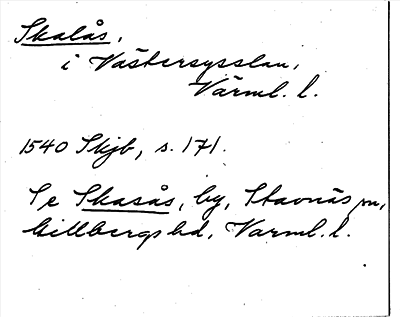 Skalås,
i Västersysslan,
Värml. l.
1540 Skjb, s. 171.
Se Skasås, by, Stavnäs sn,
Gillbergs hd, Värml. l.